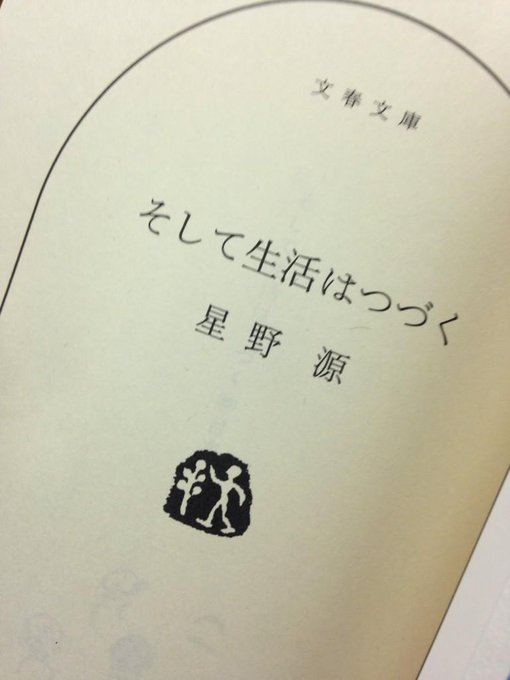 文春文庫
そして生活はつづく
星野 源